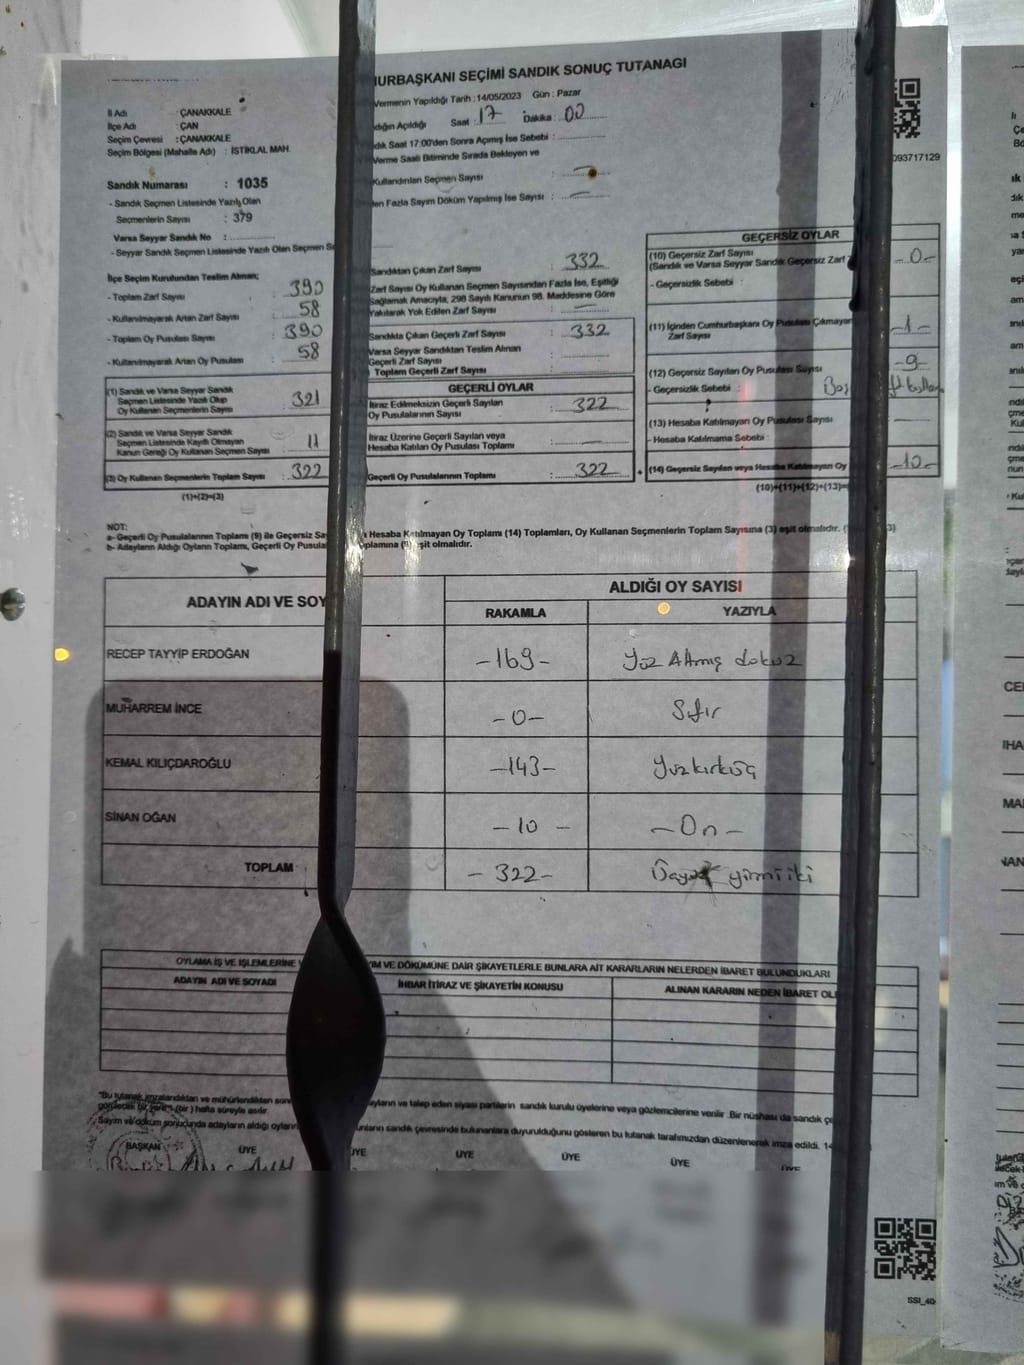 URBAŞKANI SEÇİMİ SANDIK SONUÇ TUTANAGI
Vermenin Yapıldığı Tarih : 14/05/2023 Gün : Pazar
İl Adı : ÇANAKKALE
İlçe Adı : ÇAN
Seçim Çevresi : ÇANAKKALE
Seçim Bölgesi (Mahalle Adı) : İSTİKLAL MAH.
Sandık Numarası : 1035
- Sandık Seçmen Listesinde Yazılı Olan
Seçmenlerin Sayısı : 379
Varsa Seyyar Sandık No :
- Seyyar Sandık Seçmen Listesinde Yazılı Olan Seçmen
dığın Açıldığı Saat : 17 Dakika : 00
dık Saat 17:00'den Sonra Açılmış İse Sebebi :
Verme Saati Bitiminde Sırada Bekleyen ve
Kullandırılan Seçmen Sayısı :
den Fazla Sayım Döküm Yapılmış İse Sayısı :
093717129
İlçe Seçim Kurulundan Teslim Alınan;
- Toplam Zarf Sayısı : 390
- Kullanılmayarak Artan Zarf Sayısı : 58
- Toplam Oy Pusulası Sayısı : 390
- Kullanılmayarak Artan Oy Pusulası : 58
(1) Sandık ve Varsa Seyyar Sandık
Seçmen Listesinde Yazılı Olup
Oy Kullanan Seçmenlerin Sayısı : 321
(2) Sandık ve Varsa Seyyar Sandık
Seçmen Listesinde Kayıtlı Olmayan
Kanun Gereği Oy Kullanan Seçmen Sayısı : 11
(3) Oy Kullanan Seçmenlerin Toplam Sayısı : 322
(1)+(2)=(3)
Sandıktan Çıkan Zarf Sayısı : 332
Zarf Sayısı Oy Kullanan Seçmen Sayısından Fazla İse, Eşitliği
Sağlamak Amacıyla, 298 Sayılı Kanunun 98. Maddesine Göre
Yakılarak Yok Edilen Zarf Sayısı :
Sandıkta Çıkan Geçerli Zarf Sayısı : 332
Varsa Seyyar Sandıktan Teslim Alınan
Geçerli Zarf Sayısı :
Toplam Geçerli Zarf Sayısı :
GEÇERLİ OYLAR
İtiraz Edilmeksizin Geçerli Sayılan
Oy Pusulalarının Sayısı : 322
İtiraz Üzerine Geçerli Sayılan veya
Hesaba Katılan Oy Pusulası Toplamı :
Geçerli Oy Pusulalarının Toplamı : 322
GEÇERSİZ OYLAR
(10) Geçersiz Zarf Sayısı
(Sandık ve Varsa Seyyar Sandık Geçersiz Zarf -0-
- Geçersizlik Sebebi :
(11) İçinden Cumhurbaşkanı Oy Pusulası Çıkmayan
Zarf Sayısı -1-
(12) Geçersiz Sayılan Oy Pusulası Sayısı -9-
- Geçersizlik Sebebi :
(13) Hesaba Katılmayan Oy Pusulası Sayısı
- Hesaba Katılmama Sebebi :
(14) Geçersiz Sayılan veya Hesaba Katılmayan Oy -10-
(10)+(11)+(12)+(13)=
NOT:
a- Geçerli Oy Pusulalarının Toplamı (9) ile Geçersiz Hesaba Katılmayan Oy Toplamı (14) Toplamları, Oy Kullanan Seçmenlerin Toplam Sayısına (3) eşit olmalıdır.
b- Adayların Aldığı Oyların Toplamı, Geçerli Oy eşit olmalıdır.
ADAYIN ADI VE SOY
ALDIĞI OY SAYISI
RAKAMLA YAZIYLA
RECEP TAYYİP ERDOĞAN -169- Yüz Altmış dokuz
MUHARREM İNCE -0- Sıfır
KEMAL KILIÇDAROĞLU -143- Yüzkırküç
SİNAN OĞAN -10- -On-
TOPLAM -322- Üçyüz yirmiiki
OYLAMA İŞ VE İŞLEMLERİNE IM VE DÖKÜMÜNE DAİR ŞİKAYETLERLE BUNLARA AİT KARARLARIN NELERDEN İBARET BULUNDUKLARI
ADAYIN ADI VE SOYADI İHBAR İTİRAZ VE ŞİKAYETİN KONUSU ALINAN KARARIN NEDEN İBARET OL
"Bu tutanak imzalandıktan ve mühürlendikten ayların ve talep eden siyasi partilerin sandık kurulu üyelerine veya gözlemcilerine verilir. Bir nüshası da sandık
(bir) hafta süreyle asılır.
Sayım ve döküm sonucunda adayların aldığı sandık çevresinde bulunanlara duyurulduğunu gösteren bu tutanak tarafımızdan düzenlenerek imza edildi.
BAŞKAN ÜYE ÜYE ÜYE ÜYE ÜYE ÜYE